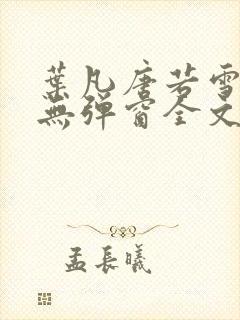 葉凡唐若雪
無彈窗全文
孟長曦